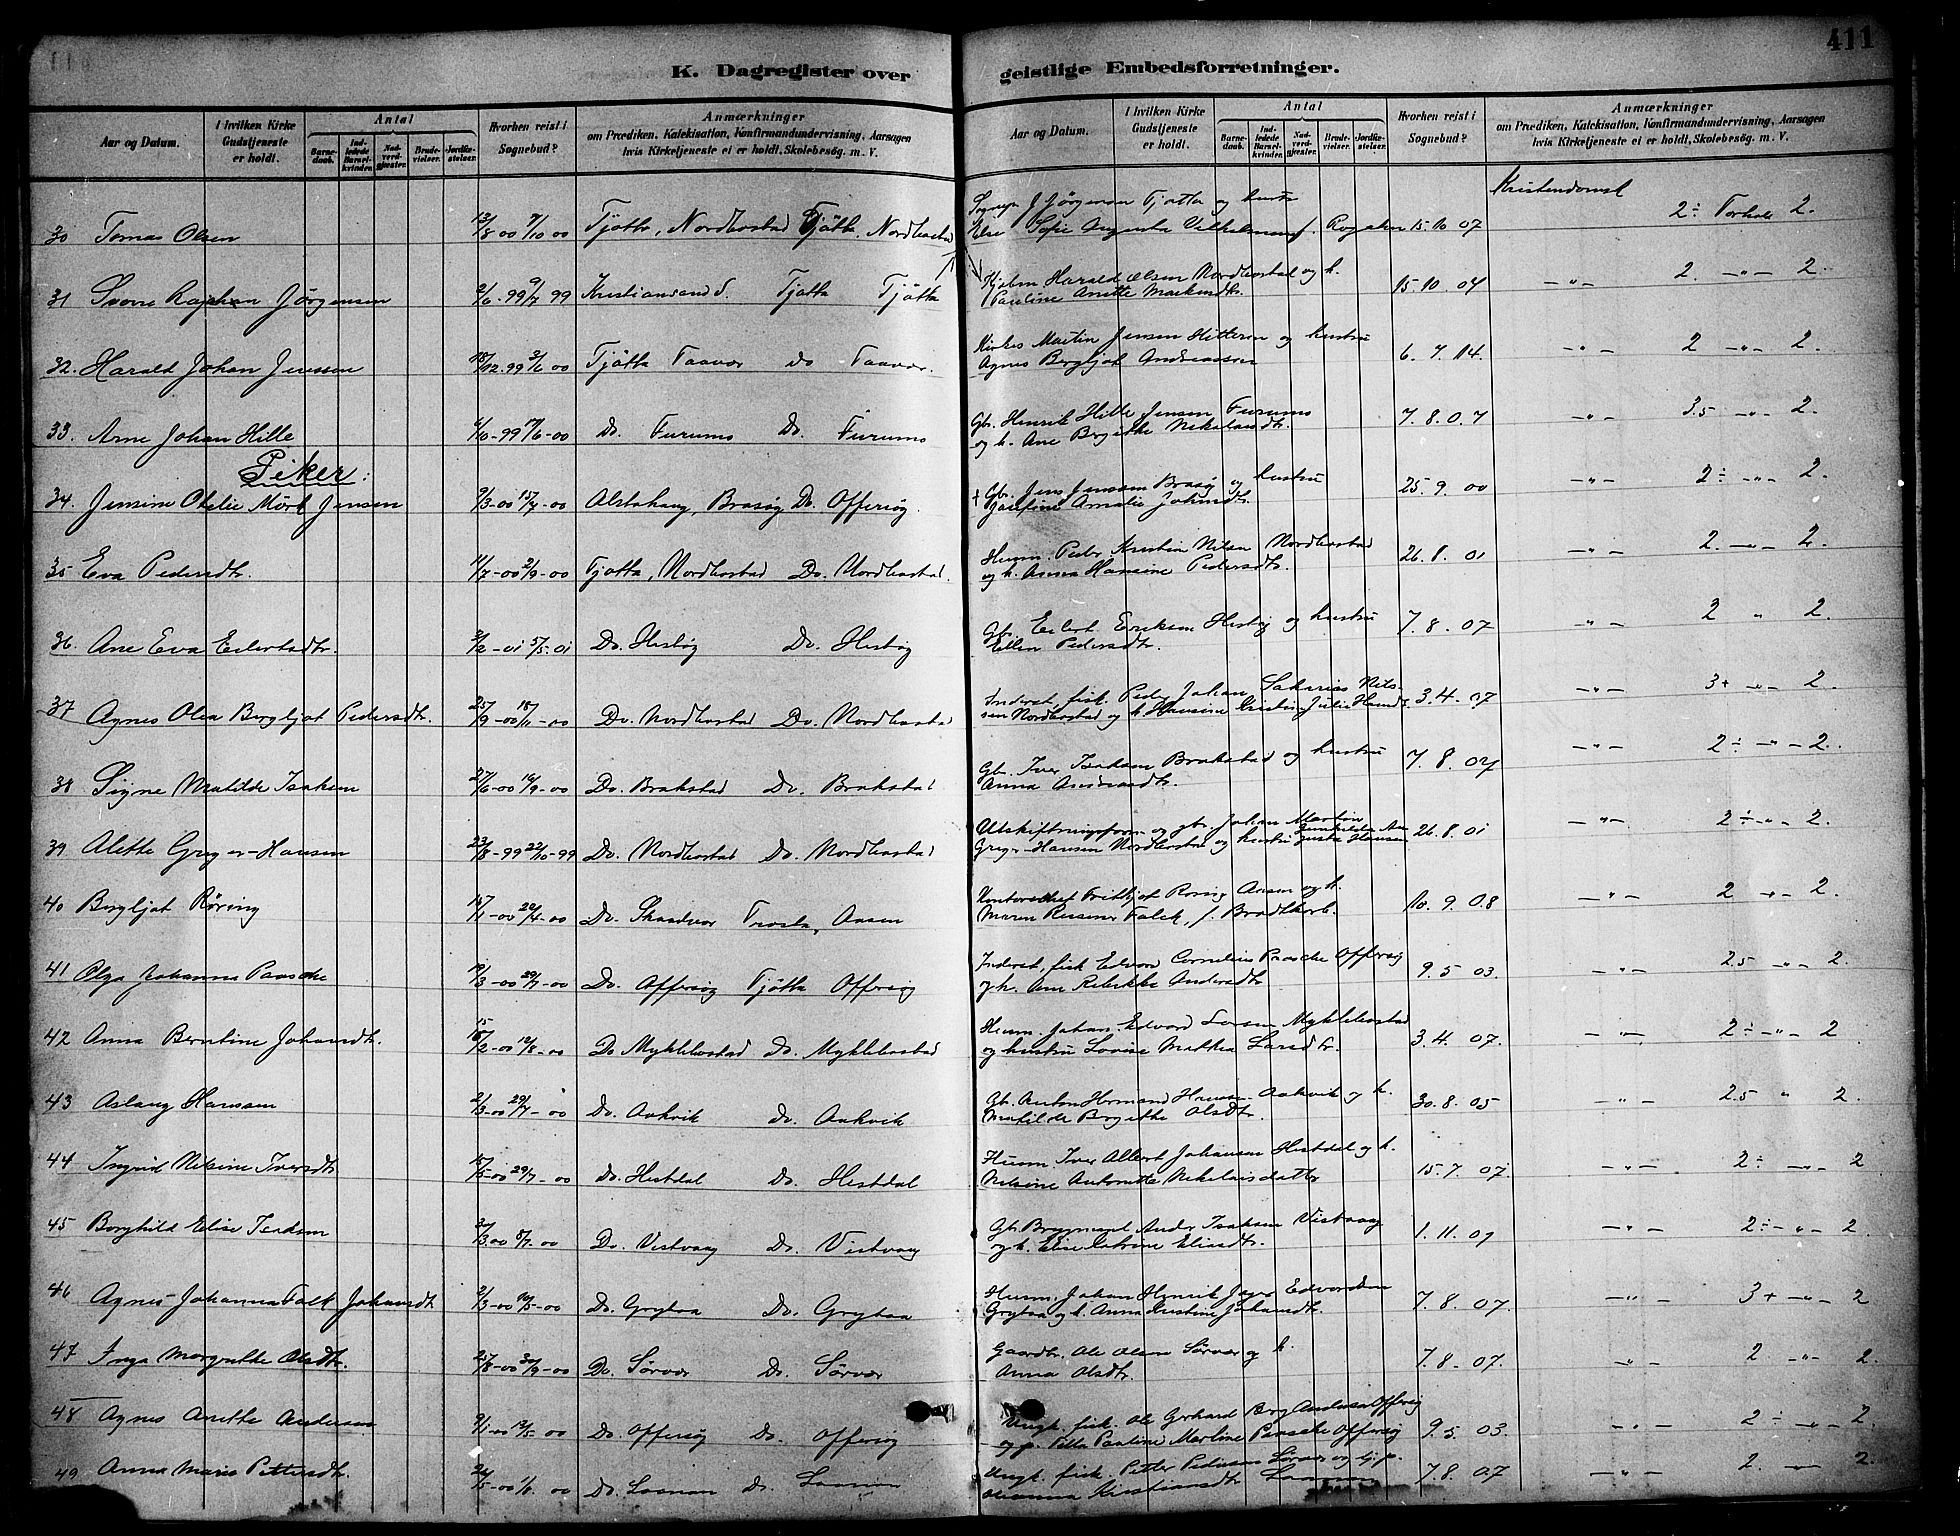 411
K. Dagregister over geistlige Embedsforretninger.
Aar og Datum.
I hvilken Kirke Gudstjeneste er holdt.
Antal
Barnedaab.
Indledede Barselkvinder.
Nadverdgjester.
Brudevielser.
Jordkastelser.
Hvorhen reist i Sognebud?
Anmærkninger
om Prædiken, Katekisation, Konfirmandundervisning, Aarsagen
hvis Kirketjeneste ei er holdt, Skolebesøg. m. V.
Aar og Datum.
I hvilken Kirke Gudstjeneste er holdt.
Antal
Barnedaab.
Indledede Barselkvinder.
Nadverdgjester.
Brudevielser.
Jordkastelser.
Hvorhen reist i Sognebud?
Anmærkninger
om Prædiken, Katekisation, Konfirmandundervisning, Aarsagen
hvis Kirketjeneste ei er holdt, Skolebesøg. m. V.
Kristendomsk
30 Tomas Olsen 13/8 00 7/10 00 Tjøtta, Nordbostad Tjøtta, Nordbostad
J Jørgensen Tjøtta og hustr
Else Sofie Augusta Vilhelmine f. 15 10 07 2÷ Forhold 2.
31 Jörgensen 2/6 99 9/7 99 Kristiansand S. Tjøtta Tjøtta
Harald Olsen Nordbostad og h.
Pauline Anette 15 10 04 — " — 2. — " — 2.
32. Harald Johan Jenssen 18/12 99 3/6 00 Tjøtta Taavær do Taavær.
Martin Jensen og hustru
Agnes Bergljot Andreassen 6. 7. 14. — " — 2 — " — 2.
33. Arne Johan Hille 6/10-99 17/6-00 Do. Furumo Do. Furumo
Gbr. Henrik Hille Jensen Furumo
og h. Ane Birgitte Nikolaisdtr. 7. 8. 07 — " — 3.5 — " — 2.
Piker:
34. Jensine Mørk Jensen 9/3-00 15/7-00 Alstahaug, Brasøy Do. Offersøy.
+ Gbr. Jens Jenssen Brasøy og hustru
Josefine Amalie 25. 9. 00 — " — 2÷ — " — 2.
35 Eva Pedersdtr. 11/7-00 2/9-00 Tjøtta, Nordbostad Do. Nordbostad.
Husm. Peder Kristian Nilsen Nordbostad
og h. Anna Hansine Pedersdtr. 26. 8. 01 — " — 2. — " — 2.
36. Ane Eva Eilertsdtr. 3/2-01 5/5-01 Do. Hestøy Do. Hestøy
Gbr. Eilert Eriksen Hestøy og hustru
Ellen Pedersdtr. 7. 8. 07 — " — 2 " 2.
37 Agnes Olea Bergljot Pedersdtr. 25/9-00 18/11-00 Do. Nordbostad Do. Nordbostad
Inderst, fisk. Peder Johan Sakarias Nilssen
Nordbostad og h. Hansine Kristine Julie 3. 4. 07 — " — 3+ — " — 2.
38 Signe Matilde Isaksen 27/6-00 16/9-00 Do. Brakstad Do. Brakstad
Gbr. Iver Isaksen Brakstad og hustru
Anna 7. 8. 07 — " — 2÷ — " — 2.
39 Alette Greger-Hansen 23/8-99 22/10-99 Do. Nordbostad Do. Nordbostad
Utskiftningsform. og gbr. Johan Martin
Greger-Hansen Nordbostad og hustru Hansen 26. 8. 01 — " — 2÷ — " — 2.
40 Bergljot Røring 15/1-00 22/4-00 Do. Skaadvær Aasen
Fritljof Røring Aasen og h.
Maren Falck, f. 10. 9. 08 — " — 2 — " — 2.
41 Olga Johanna Paasche 12/3-00 29/7-00 Do. Offersøy Tjøtta Offersøy
Inderst, fisk Edvard Cornelius Paasche Offersøy
og h. Ane Rebekke Andersdtr 9. 5. 03. — " — 2.5 — " — 2.
42 Anna Berntine Johansdtr. 15 18/2-00 12/8-00 Do Myklebostad Do. Myklebostad
Husm. Johan Edvard Larsen Myklebostad
og hustru Lovise Mathea Larsdtr. 3. 4. 07. — " — 2÷ — " — 2
43 Aslaug Hanssen 2/3-00 29/7-00 Do. Aakvik Do. Aakvik
Gbr. Anton Hansen Aakvik og h.
Matilde Birgitte Olsdtr. 30. 8. 05 — " — 2.5 " 2.
44 Ingrid Nilsine Iversdtr 15/5-00 29/7-00 Do. Hestdal Do. Hestdal
Husm. Iver Albert Johansen Hestdal og h.
Nilsine Antonette Nikolaisdatter 15. 7. 07. — " — 2÷ — " — 2
45 Borghild Elise Isaksen 3/3.00 8/7.00 Do. Vistvaag Do. Vistvaag
Gbr. Isaksen Vistvaag
og h. Elise Katrine Eliasdtr. 1. 11. 01 — " — 2÷ — " — 2
46 Agnes Johanna Falk Johansdtr 2/3-00 10/5-00 Do. Grytaa Do. Grytaa
Husm. Johan Henrik Edvardsen
Grytaa og h. Anna Kristine Johansdtr. 7. 8. 07. — " — 3+ — " — 2
47 Inga Margrethe Olsdtr. 25/8-00 30/9-00 Do. Sørvær Do. Sørvær
Gaardbr. Ole Olsen Sørvær og h.
Anna Olsdtr. 7. 8. 07. — " — 2 — " — 2.
48 Agnes Anette Andersen 9/1-00 13/5-00 Do. Offersøy Do. Offersøy
Ungk. fisk. Ole Gerhard Berg Andersen Offersøy
og p. Pauline Martine Paasche Offersøy 9. 5. 03. — " — 2÷ — " — 2.
49 Anna Marie Pettersdtr. 24/5-00 1/8 00 Do. Do.
Ungk. fisk. Petter Pedersen Sørvær og p.
Kristiansdtr 7. 8. 07 — " — 2. — " — 2.